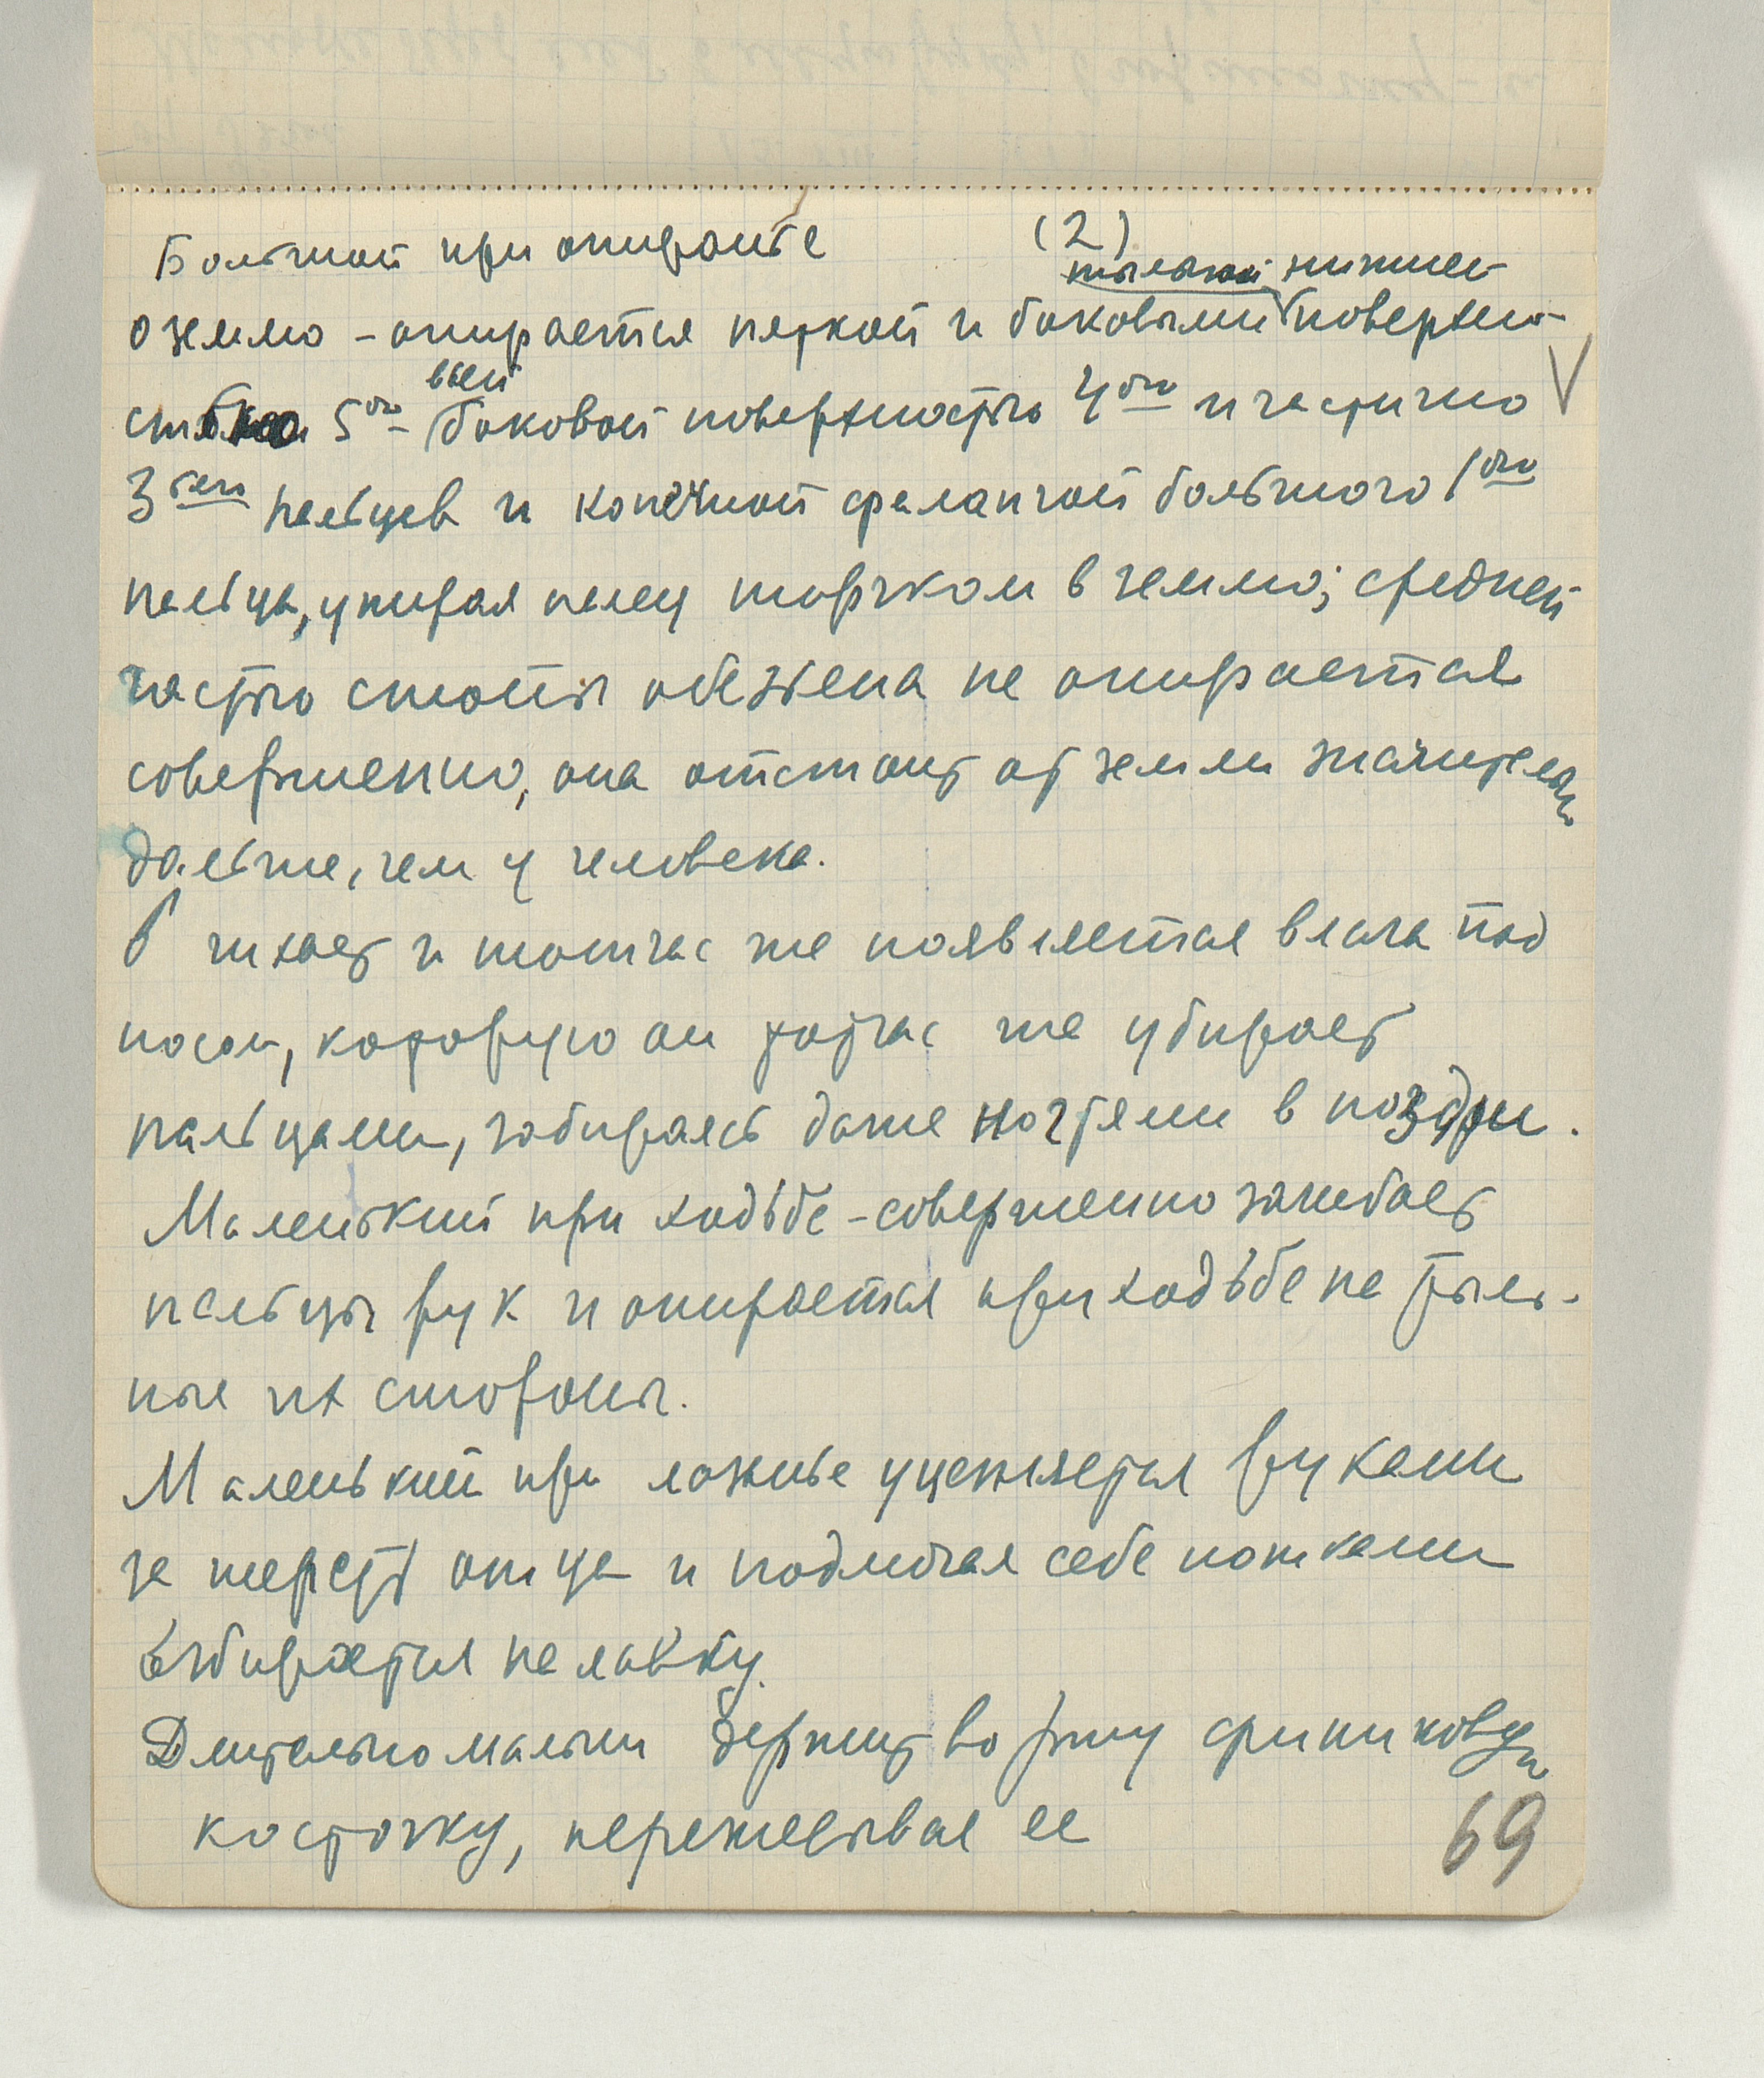 Большой при опираньe
(2)
тыльной нижней
о землю – опирается пяткой и боковыми поверхно-
всей
5ого боковой поверхностью 4ого и частично
3его пальцев и конечной фалангой большого 1ого
пальца, упирая палец торчком в землю; средней
частью стопы обезьяна не опирается
совершенно, она отстоит от земли значительно
дальше, чем у человека.
чихает и тотчас же появляется влага под
носом, которую он тотчас же убирает
пальцами, забираясь даже ногтями в ноздри.
Маленький при ходьбе – совершенно загибает
пальцы рук и опирается при ходьбе на тыль-
ные их стороны.
Маленький при лазанье уцепляется руками
за шерсть отца и подмогая себе ножками
взбирается на лавку.
Длительно малыш держит во рту финиковую
косточку, пережевывая ее
69